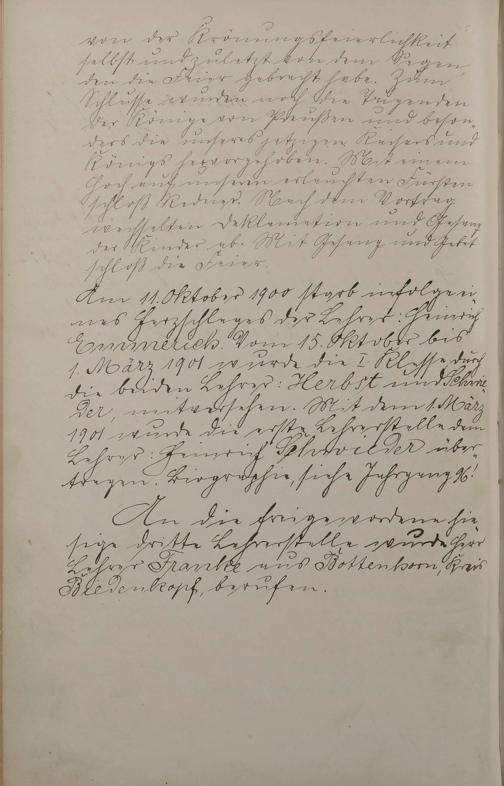 von der Krönungsfeierlichkeit
selbst und zuletzt von dem Segen,
den die Feier gebracht habe. Zum
Schlusse wurden noch die Tugenden
der Könige von Preußen und beson-
ders die unseres jetzigen Kaisers und
Königs hervorgehoben. Mit einem
Hoch auf unseren erlauchten Fürsten
schloß Redner. Nach dem Vortrag
wechselten Deklamation und Gesang
der Kinder ab. Mit Gesang und Gebet
schloß die Feier.
Am 11. Oktober 1900 starb infolge ei-
nes Herzschlages der Lehrer: Heinrich
Emmerich. Vom 15. Oktober bis
1. März 1901 wurde die I Klasse durch
die beiden Lehrer: Herbst und Schnei-
der, mitversehen. Mit dem 1. März
1901 wurde die erste Lehrerstelle dem
Lehrer: Heinrich Schneider über-
tragen. Biographie, siehe Jahrgang 96!
An die freigewordene hie-
sige dritte Lehrerstelle wurde Herr
Lehrer Franke aus Bottenhorn, Kreis
Biedenkopf, berufen.